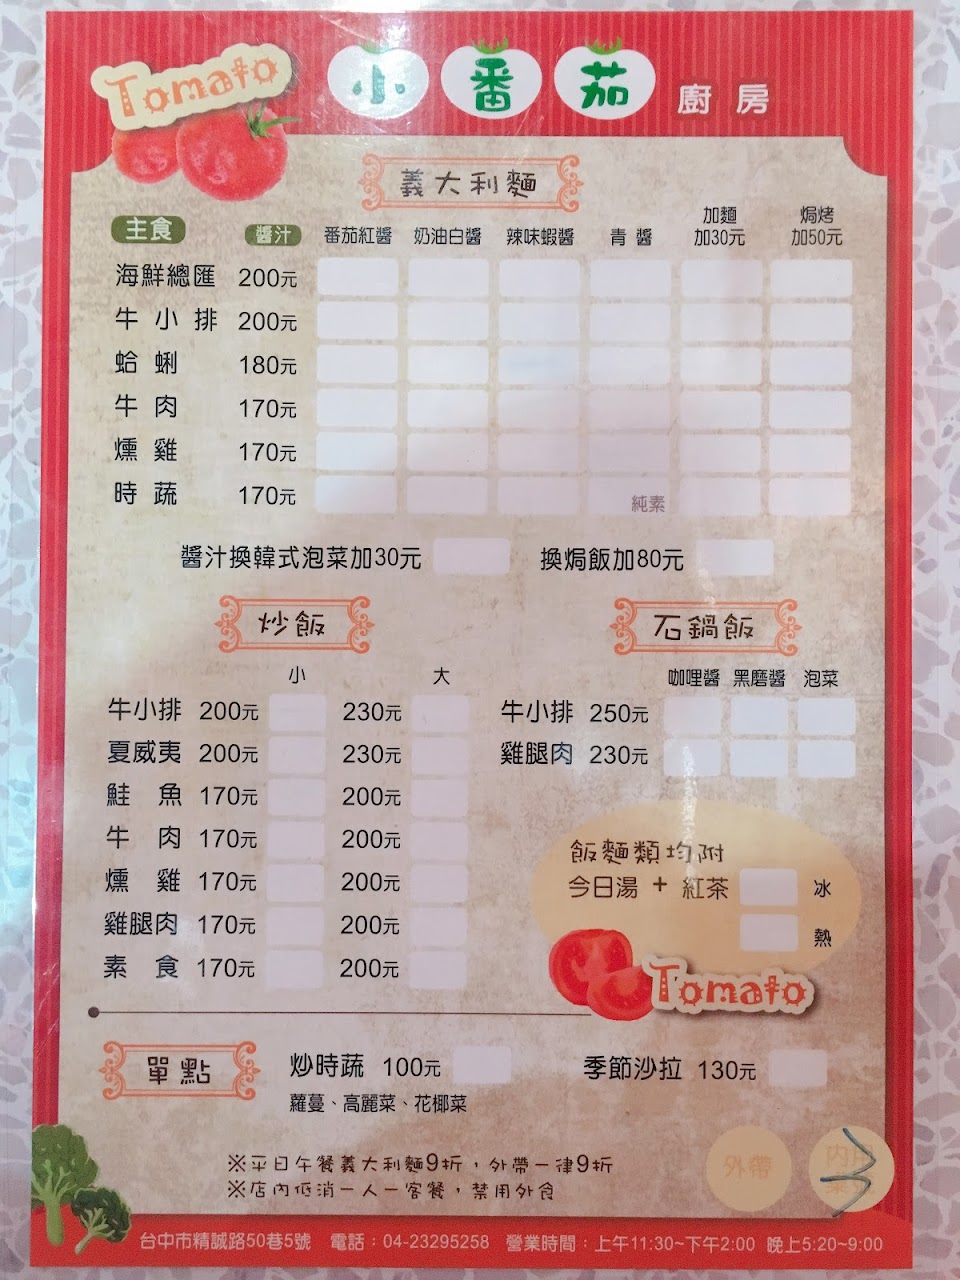 Tomato
小番茄廚房
義大利麵
主食 醬汁 番茄紅醬 奶油白醬 辣味蝦醬 青醬 加麵加30元 焗烤加50元
海鮮總匯 200元
牛小排 200元
蛤蜊 180元
牛肉 170元
燻雞 170元
時蔬 170元 純素
醬汁換韓式泡菜加30元 換焗飯加80元
炒飯
小 大
牛小排 200元 230元
夏威夷 200元 230元
鮭魚 170元 200元
牛肉 170元 200元
燻雞 170元 200元
雞腿肉 170元 200元
素食 170元 200元
石鍋飯
咖哩醬 黑磨醬 泡菜
牛小排 250元
雞腿肉 230元
飯麵類均附
今日湯 + 紅茶 冰
熱
Tomato
單點
炒時蔬 100元 季節沙拉 130元
蘿蔓、高麗菜、花椰菜
※平日午餐義大利麵9折，外帶一律9折
※店內低消一人一客餐，禁用外食
外帶 內用
台中市精誠路50巷5號 電話：04-23295258 營業時間：上午11:30~下午2:00 晚上5:20~9:00